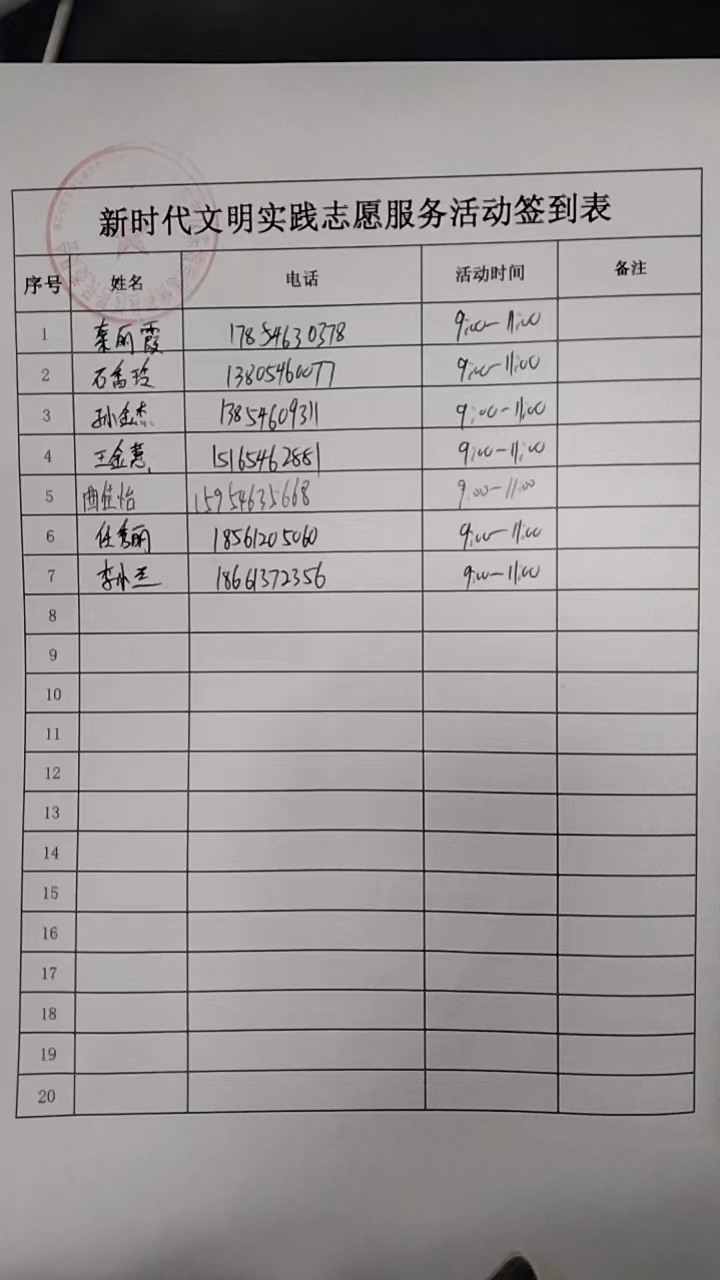 新时代文明实践志愿服务活动签到表
序号 姓名 电话 活动时间 备注
1 秦丽霞 17854630378 9:00-11:00
2 石香玲 13805460077 9:00-11:00
3 孙金杰 13854609311 9:00-11:00
4 王金慧 15165462881 9:00-11:00
5 曲佳怡 15954635668 9:00-11:00
6 任秀丽 18561205060 9:00-11:00
7 李小兰 18661372356 9:00-11:00
8
9
10
11
12
13
14
15
16
17
18
19
20